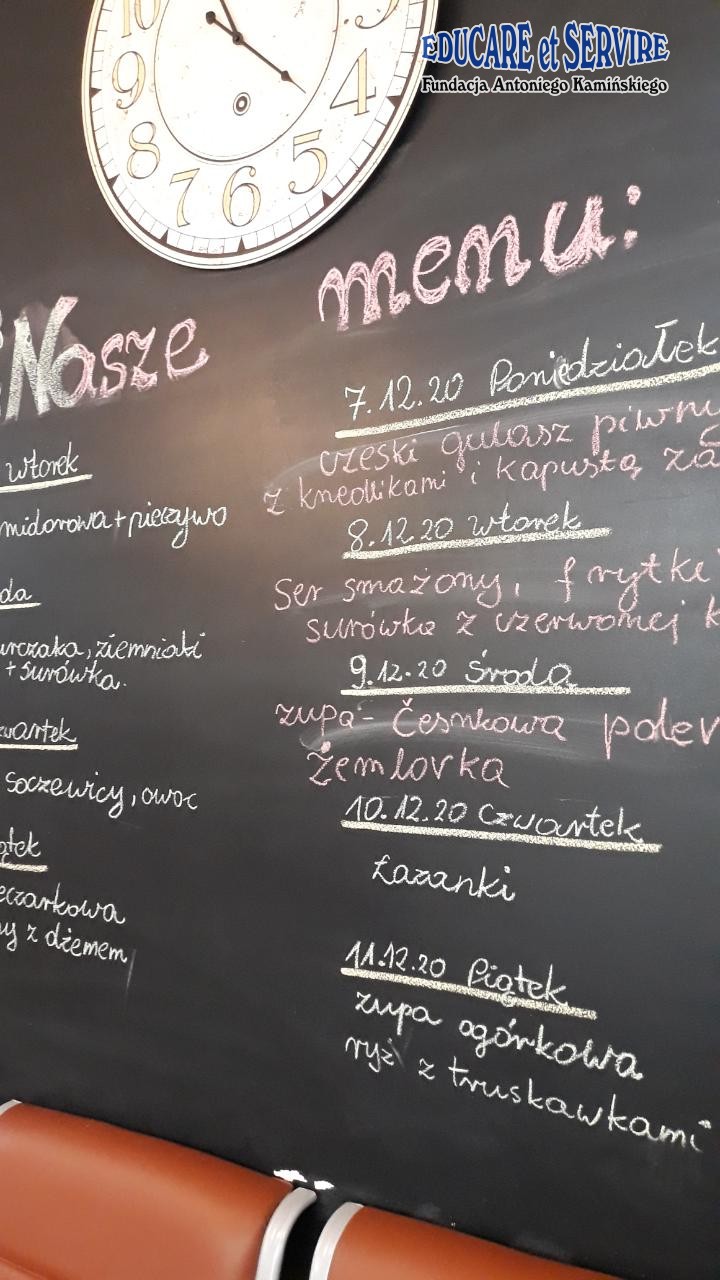 EDUCARE et SERVIRE
Fundacja Antoniego Kamińskiego
10
9
8
7
6
5
4
3
Nasze menu:
wtorek
midorowa + pieczywo
da
urczaka, ziemniaki
+ surówka.
wartek
Soczewicy, owoc
ątek
eczarkowa
y z dżemem
7.12.20 Poniedziałek
czeski gulasz piwny
z knedlikami i kapustą za
8.12.20 wtorek
Ser smażony, frytki
surówka z czerwonej k
9.12.20 Środa
zupa - Česnkowa polev
Žemlovka
10.12.20 Czwartek
Łazanki
11.12.20 Piątek
zupa ogórkowa
ryż z truskawkami